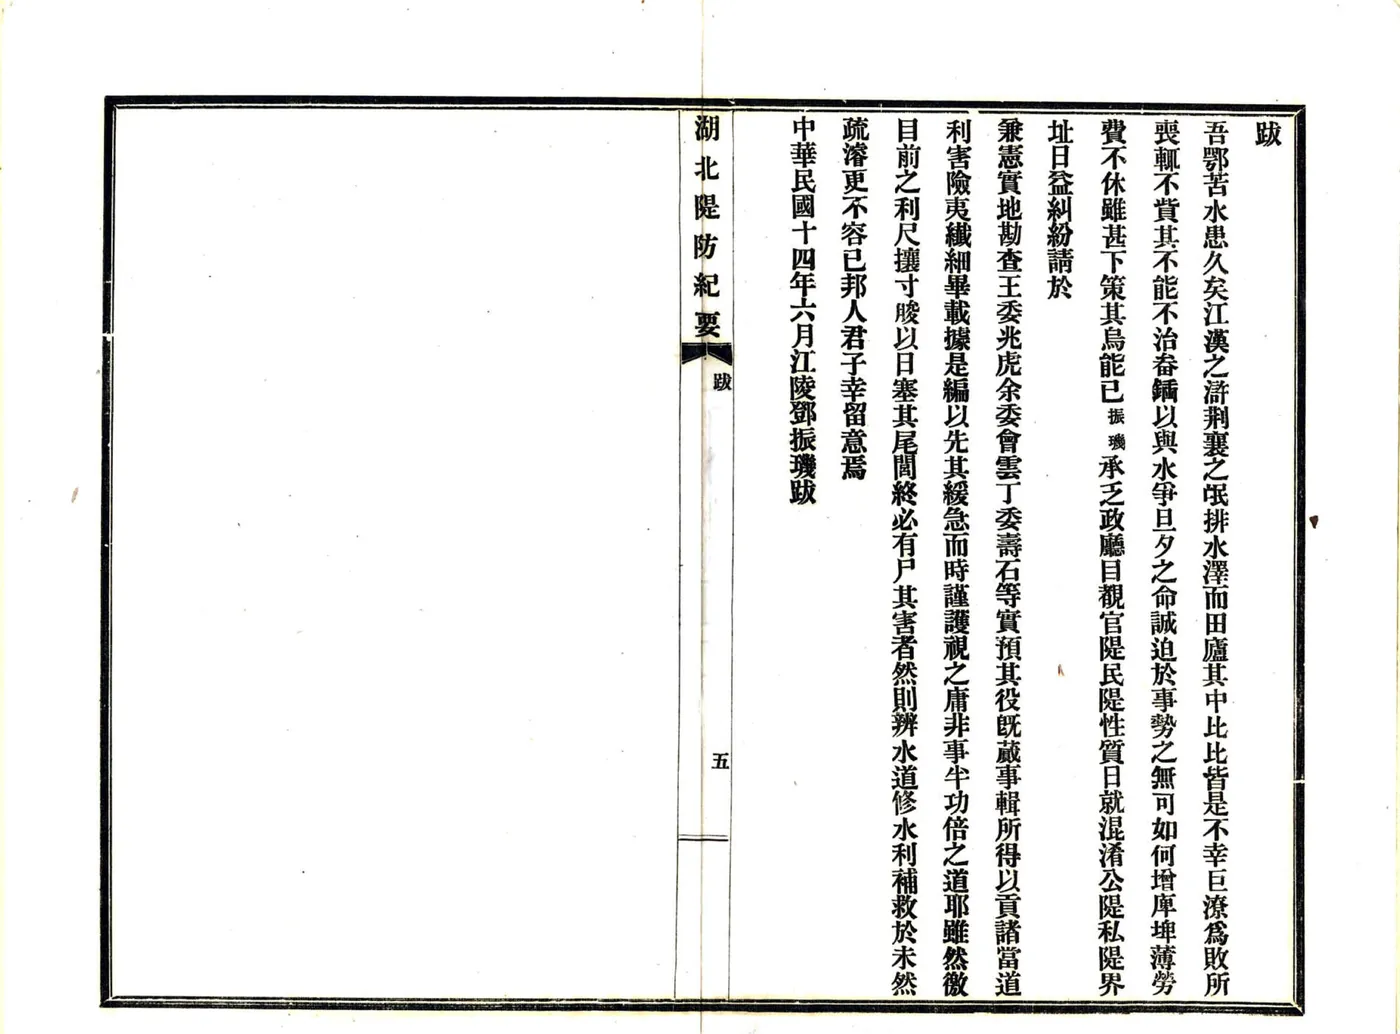 跋
吾鄂苦水患久矣江漢之滸荆襄之氓排水澤而田廬其中比比皆是不幸巨潦爲敗所
喪輒不貲其不能不治畚鍤以與水爭旦夕之命誠迫於事勢之無可如何增庳埤薄勞
費不休雖甚下策其烏能已振璣承乏政廳目覩官隄民隄性質日就混淆公隄私隄界
址日益糾紛請於
兼憲實地勘查王委兆虎余委會雲丁委壽石等實預其役旣蕆事輯所得以貢諸當道
利害險夷纎細畢載據是編以先其緩急而時謹護視之庸非事半功倍之道耶雖然徼
目前之利尺攘寸朘以日塞其尾閭終必有尸其害者然則辨水道修水利補救於未然
疏濬更不容已邦人君子幸留意焉
中華民國十四年六月江陵鄧振璣跋
湖北隄防紀要
跋
五